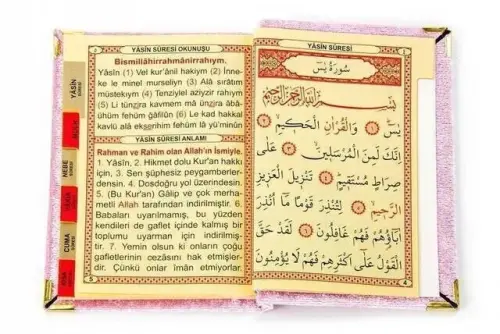 YÂSİN SÛRESİ OKUNUŞU
Bismillâhirrahmânirrahıym.
Yâsîn (1) Vel kur'ânil hakiym (2) İnne-
ke le minel murseliyn (3) Alâ sırâtim
müstekıym (4) Tenziylel aziyzir rahıym
(5) Li tünzira kavmem mâ ünzira âbâ-
ühüm fehüm ğâfilûn (6) Le kad hakkal
kavlü alâ ekserihim fehüm lâ yü'minûn
YÂSİN SÛRESİ ANLAMI
Rahman ve Rahim olan Allah'ın İsmiyle.
1. Yâsîn, 2. Hikmet dolu Kur'an hakkı
için, 3. Sen şüphesiz peygamberler-
densin. 4. Dosdoğru yol üzerindesin.
5. (Bu Kur'an) Gâlip ve çok merha-
metli Allah tarafından indirilmiştir. 6.
Babaları uyarılmamış, bu yüzden
kendileri de gaflet içinde kalmış bir
toplumu uyarman için indirilmiş-
tir. 7. Yemin olsun ki onların çoğu
gafletlerinin cezasını hak etmişler-
dir. Çünkü onlar îman etmiyorlar.
5
YÂSİN
NEBE
CUMA
YÂSİN SÛRESİ
سُورَةُ يٰسٓ
بِسْمِ اللّٰهِ الرَّحْمٰنِ الرَّحِيمِ
يٰسٓ ﴿١﴾ وَالْقُرْاٰنِ الْحَكِيمِ ﴿٢﴾
اِنَّكَ لَمِنَ الْمُرْسَلِينَ ﴿٣﴾ عَلٰى
صِرَاطٍ مُسْتَقِيمٍ ﴿٤﴾ تَنْزِيلَ الْعَزِيزِ
الرَّحِيمِ ﴿٥﴾ لِتُنْذِرَ قَوْمًا مَا اُنْذِرَ
اٰبَاؤُهُمْ فَهُمْ غَافِلُونَ ﴿٦﴾ لَقَدْ حَقَّ
الْقَوْلُ عَلٰى اَكْثَرِهِمْ فَهُمْ لَا يُؤْمِنُونَ
4